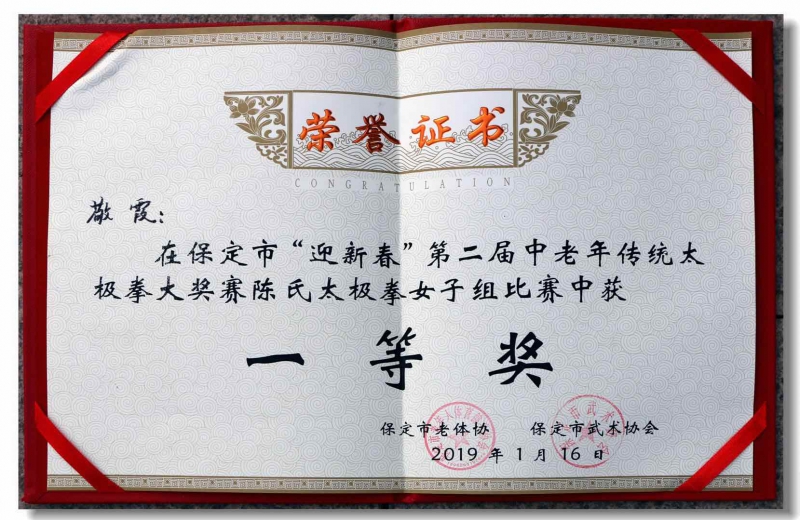 荣誉证书
CONGRATULATION
敬霞：
在保定市“迎新春”第二届中老年传统太
极拳大奖赛陈氏太极拳女子组比赛中获
一等奖
保定市老体协 保定市武术协会
2019 年 1 月 16 日